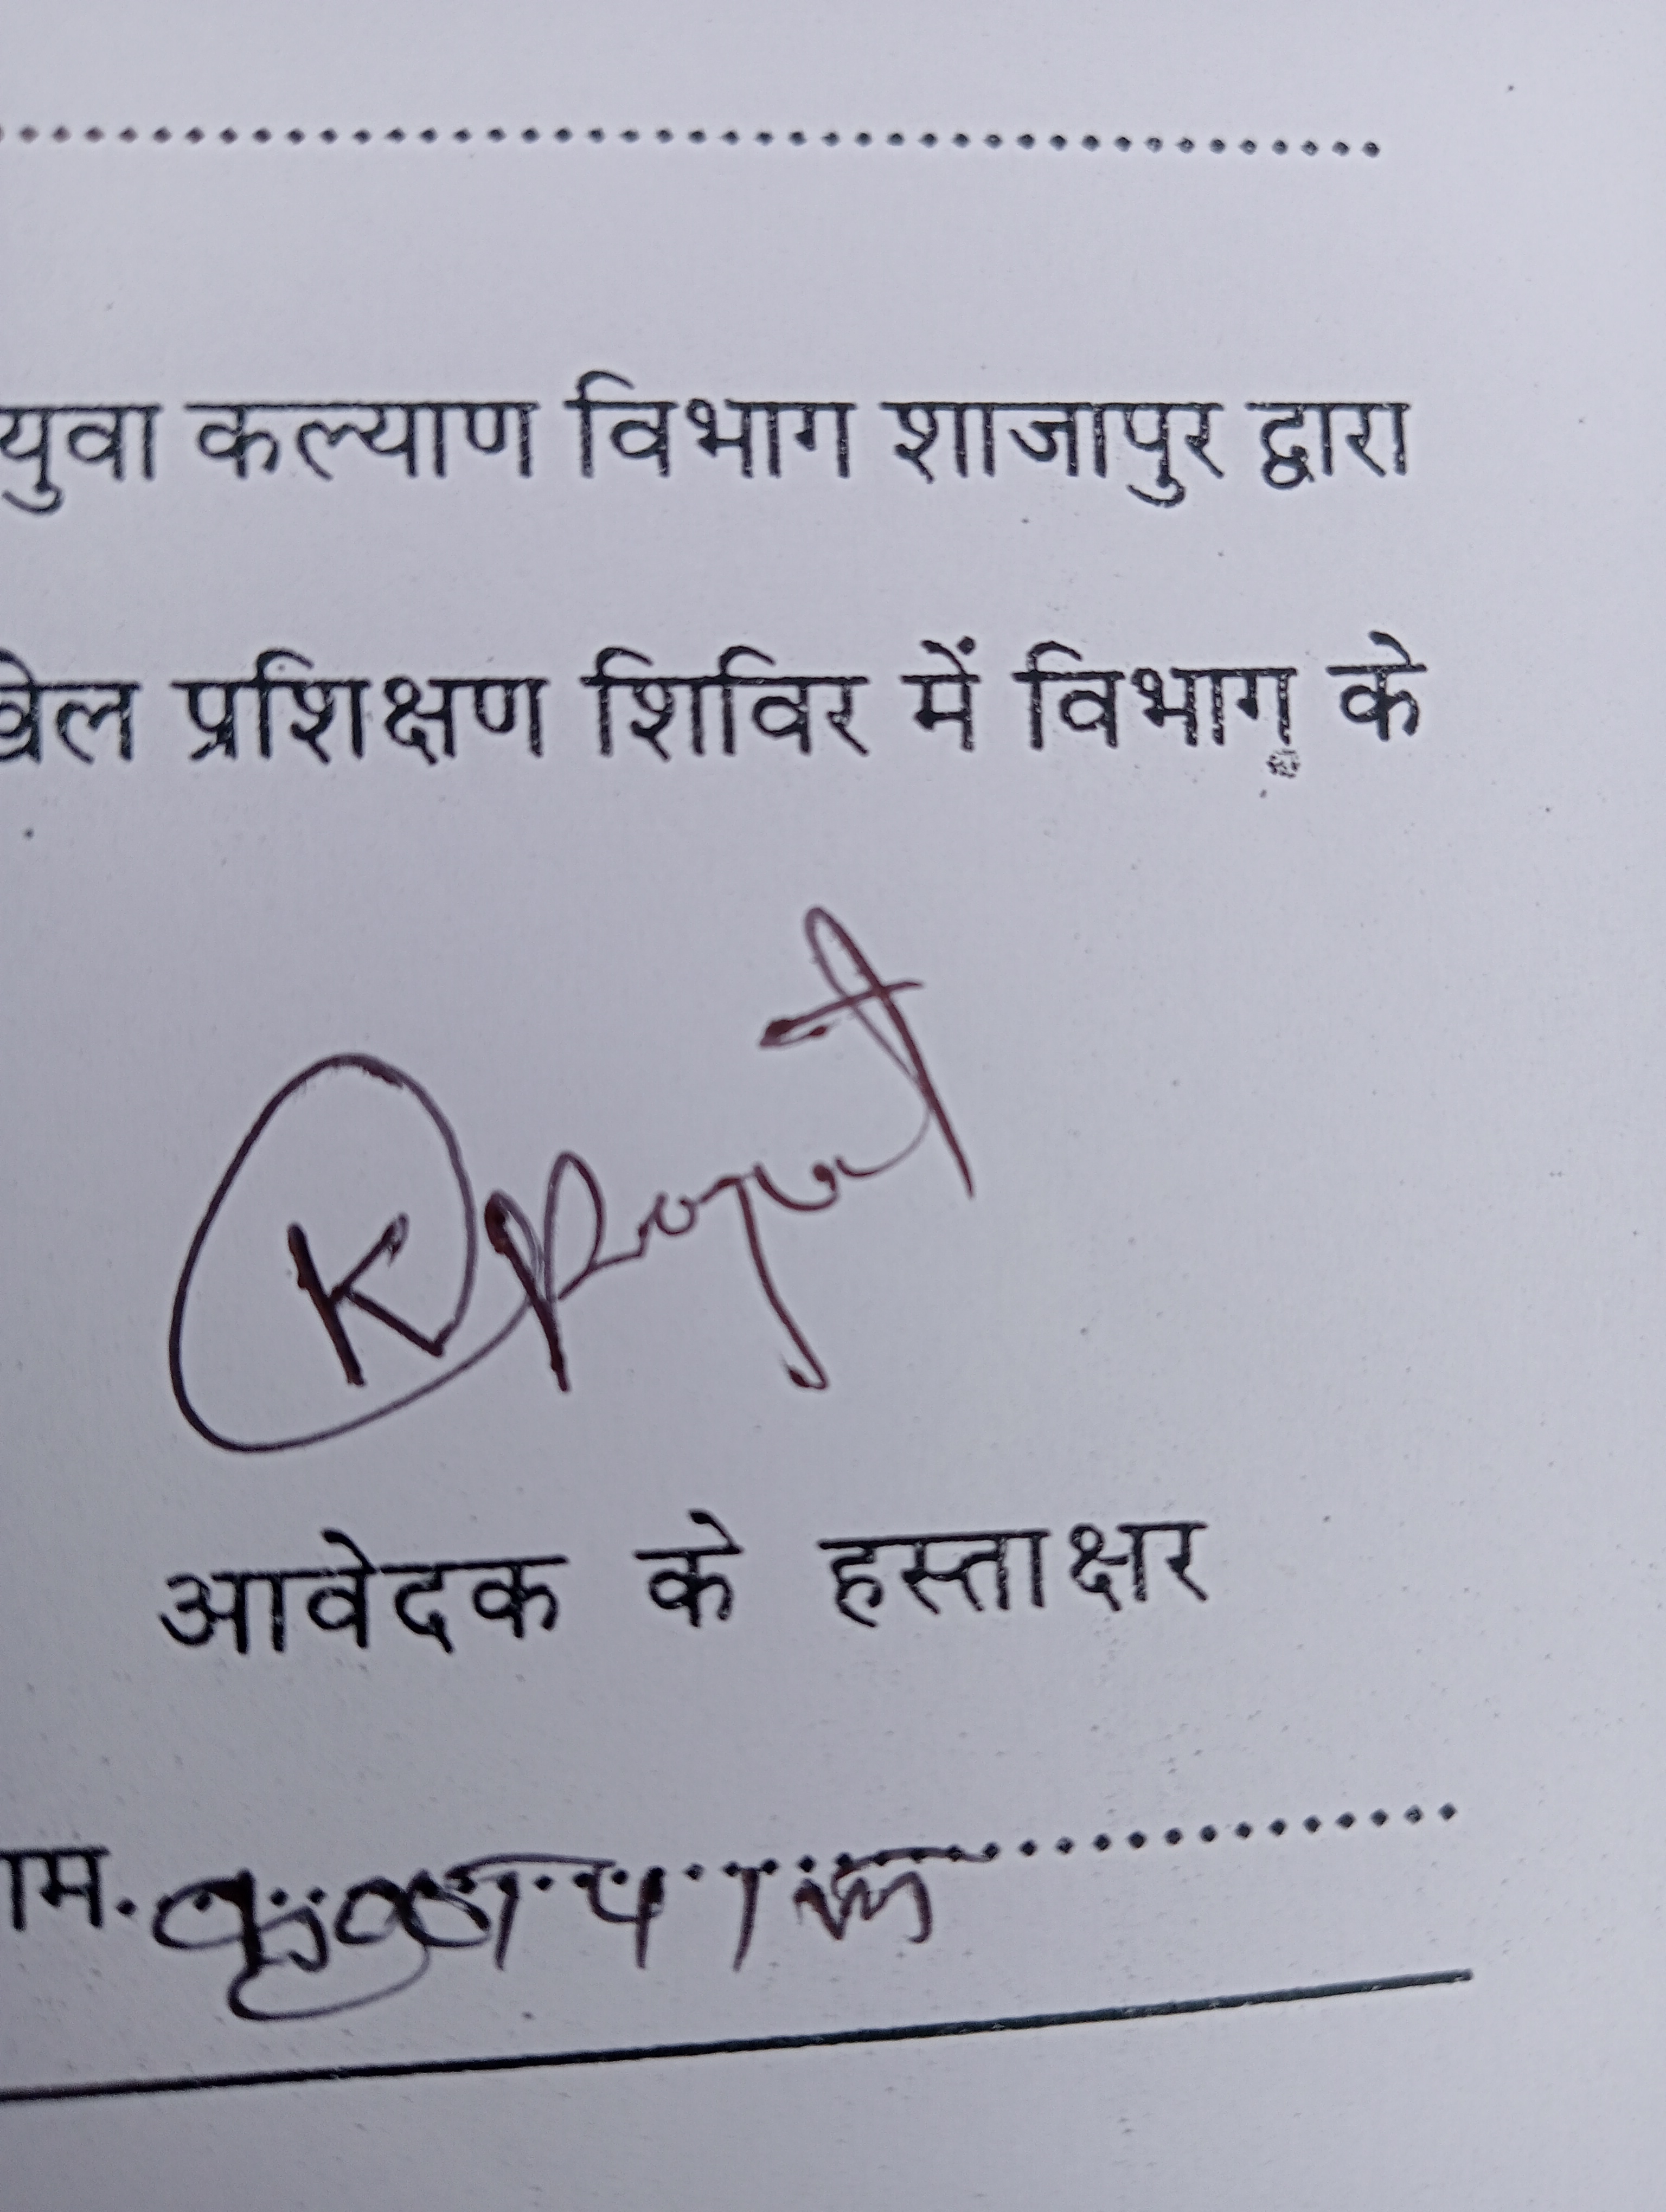 .......................................................
युवा कल्याण विभाग शाजापुर द्वारा
खेल प्रशिक्षण शिविर में विभाग के
K
आवेदक के हस्ताक्षर
ाम.